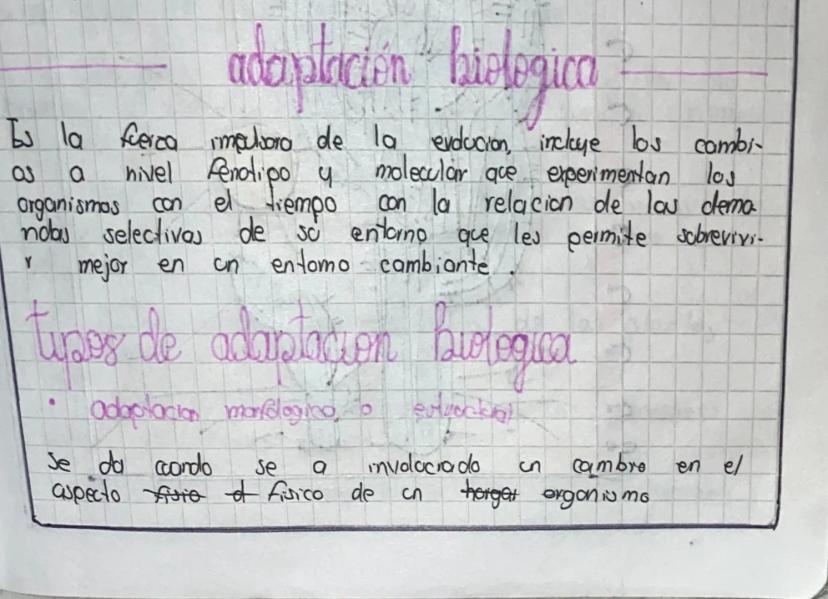 adaptación biologica
Es la fuerza impulsora de la evolucion, incluye los cambi-
os a nivel fenotipo y molecular que experimentan los
organismos con el tiempo con la relacion de las dema
ndas selectivas de su entorno que les permite sobrevivi-
r mejor en un entorno cambiante.
tipos de adaptacion biologica
• adaptacion morfologica o
Se da cuando se a involucrado un cambro en el
aspecto fisico de un organismo